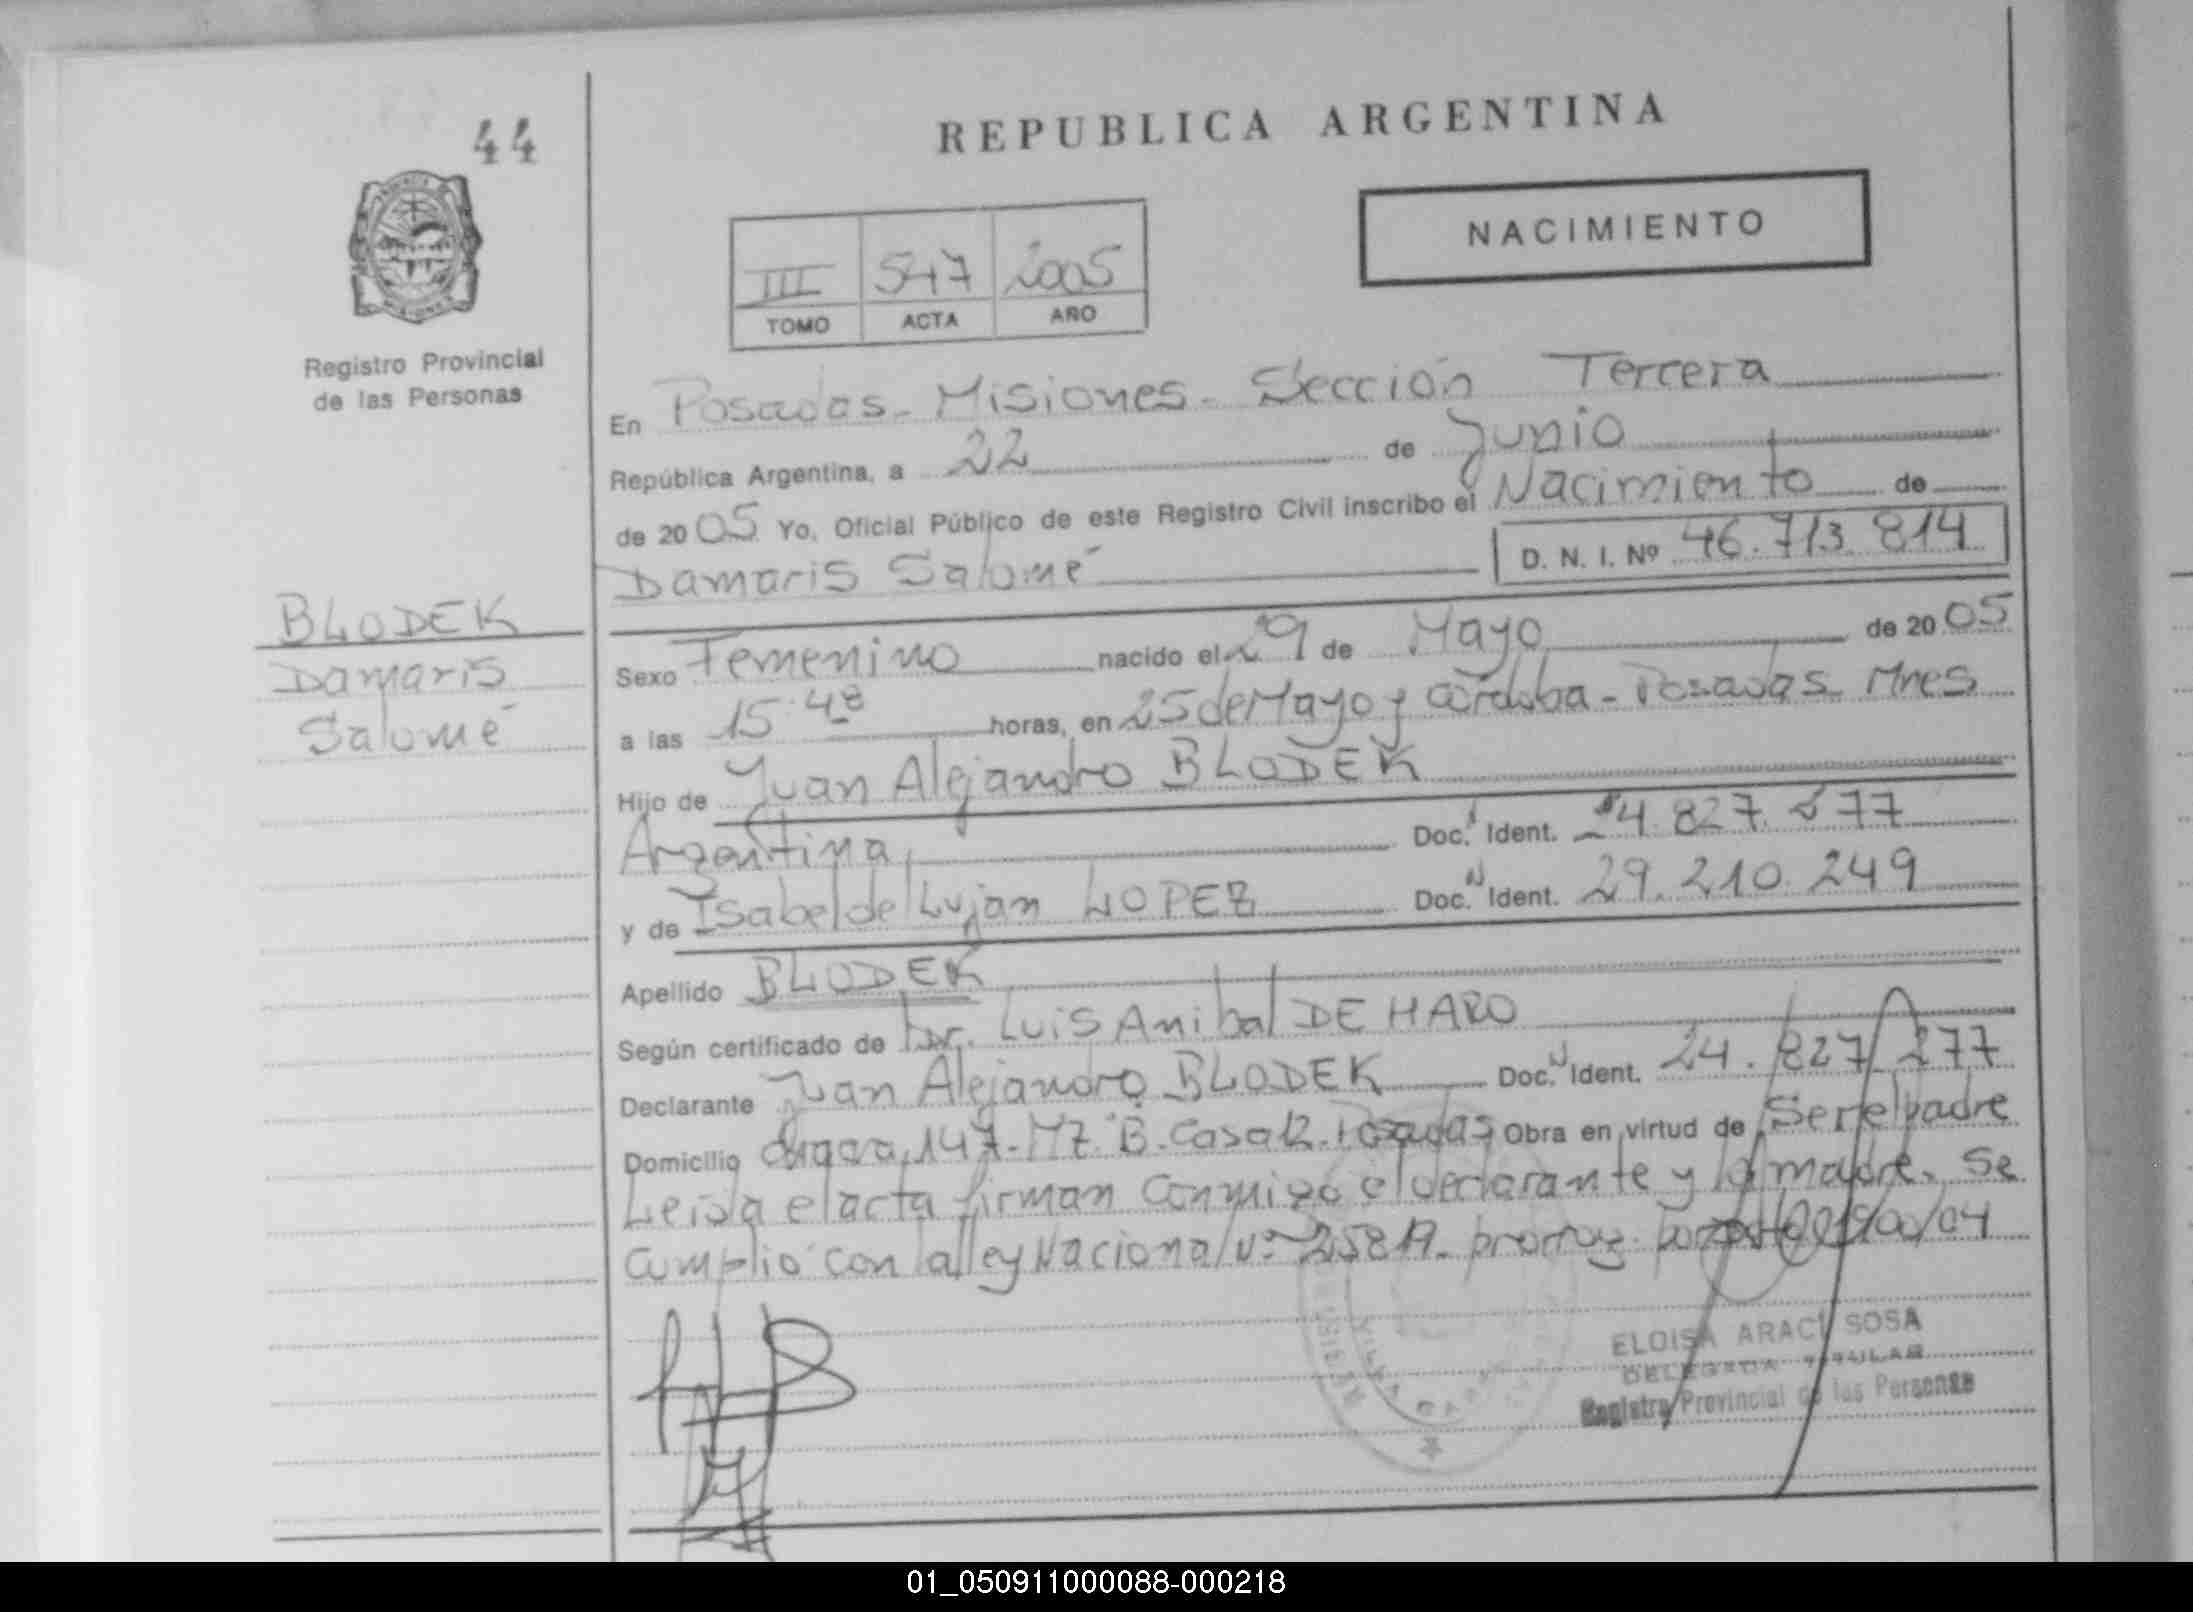 44
Registro Provincial
de las Personas
BLODEK
Damaris
Salomé
REPUBLICA ARGENTINA
NACIMIENTO
III 547 2005
TOMO ACTA AÑO
En Posadas - Misiones - Sección Tercera
República Argentina, a 22 de Junio
de 2005 Yo, Oficial Público de este Registro Civil inscribo el Nacimiento de
Damaris Salomé D. N. I. Nº 46.713.814
Sexo Femenino nacido el 29 de Mayo de 2005
a las 15:48 horas, en 25 de Mayo y Córdoba - Posadas Mnes
Hijo de Juan Alejandro BLODEK
Argentina Doc. Ident. 24.827.277
y de Isabel del Lujan LOPEZ Doc. Ident. 29.210.249
Apellido BLODEK
Según certificado de Dr. Luis Anibal DE HARO
Declarante Juan Alejandro BLODEK Doc. Ident. 24.827.277
Domicilio 147 - Mz. B. Casa 12. Posadas Obra en virtud de Ser el padre
Leida el acta firman conmigo el declarante y la madre. Se
cumplió con la ley Nacional Nº 25819. prorrog. por /04
ELOISA ARACI SOSA
DELEGADA TITULAR
Registro Provincial de las Personas
01_050911000088-000218